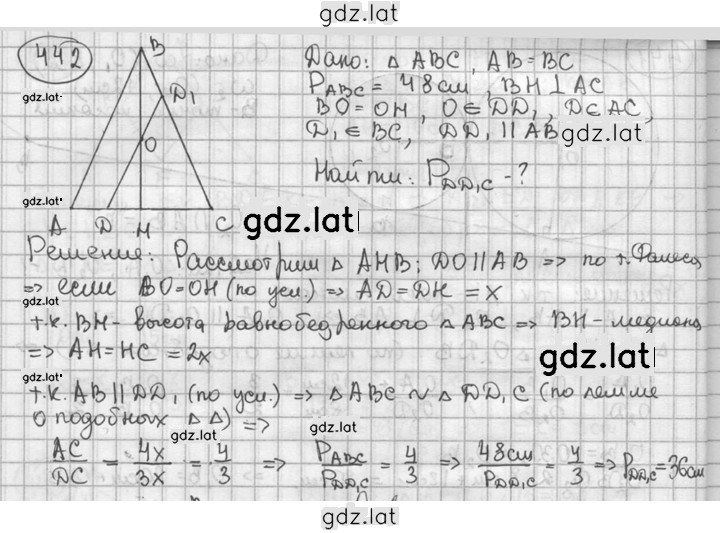 gdz.lat
442
B
D₁
O
A D H C
gdz.lat
Дано: △ ABC, AB=BC
P_ABC = 48 см, BH⊥AC
BO=OH, O∈DD₁, D∈AC,
D₁∈BC, DD₁ ∥ AB
gdz.lat
Найти: P_DD₁C -?
gdz.lat
gdz.lat
Решение: Рассмотрим △ AHB; DO∥AB => по т. Фалеса
=> если BO=OH (по усл.) => AD=DH =x
gdz.lat
т.к. BH- высота равнобедренного △ ABC => BH- медиана
=> AH=HC = 2x
gdz.lat
gdz.lat
т.к. AB∥DD₁ (по усл.) => △ ABC ~ △ DD₁C (по лемме
о подобных △△) =>
gdz.lat
AC/DC = 4x/3x = 4/3 => P_ABC/P_DD₁C = 4/3 => 48см/P_DD₁C = 4/3 => P_DD₁C = 36см
gdz.lat